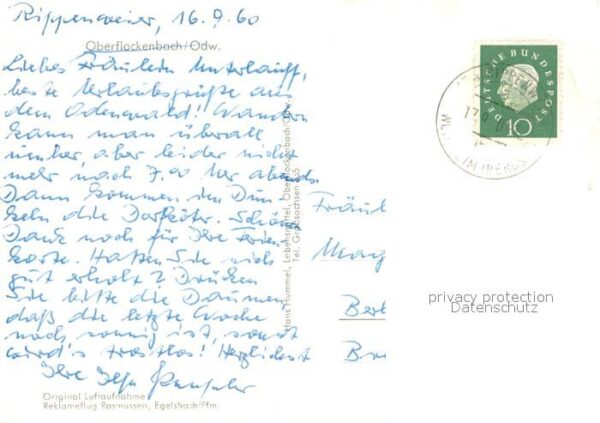 Rippenweier, 16.9.60
Oberflockenbach/Odw.
Liebes Fräulein Unterlauff,
beste Urlaubsgrüße aus
dem Odenwald! Wandern
kann man überall
umher, aber leider nicht
mehr nach 7.00 Uhr abends.
Dann kommen im Dun-
keln die Dorfköter. Schönen
Dank noch für Ihre Ferien
karte. Hatten Sie sich
gut erholt? Drücken
Sie bitte die Daumen,
daß die letzte Woche
noch sonnig ist, sonst
wird's trostlos! Herzlichst
Ihre Ilse
Original Luftaufnahme
Reklameflug Rasmussen, Egelsbach/Ffm.
Hans Hummel, Lebensmittel, Oberflockenbach/Odw.
Tel. Großsachsen
DEUTSCHE BUNDESPOST
10
Fräul
Mag
Berl
privacy protection
Datenschutz